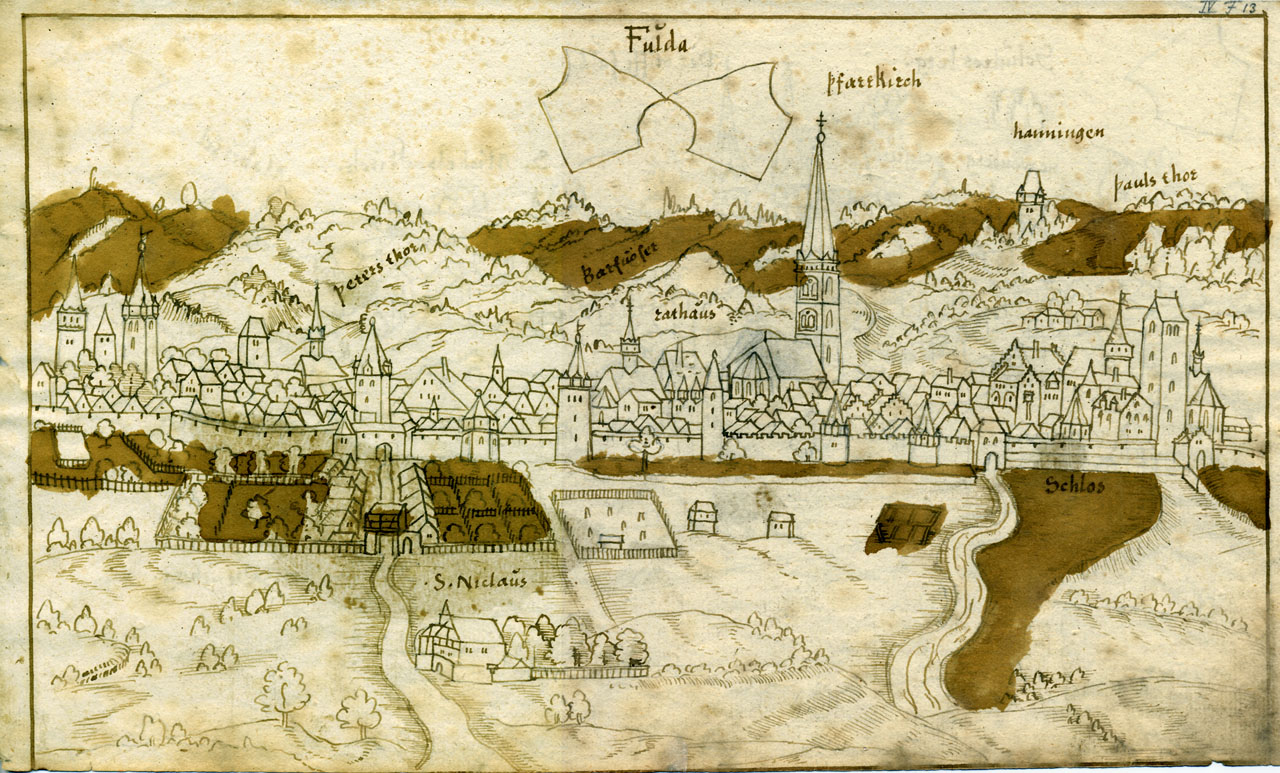 IV F 13
Fulda
Pfarrkirch
hauningen
Pauls thor
Peters thor
Barfüser
rathaus
Schlos
S. Niclaus